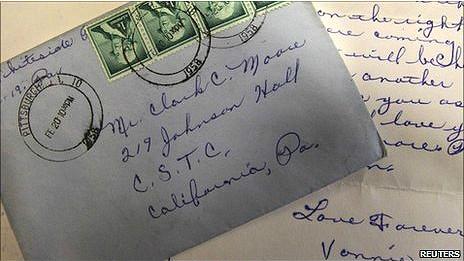 Whiteside
Pa.
PITTSBURGH
FE 20
1958
1958
1958
Mr. Clark C. Moore
219 Johnson Hall
C.S.T.C.
California, Pa.
on the right
are coming
will be
another
you as
love y
Love Forever
Vonnie
REUTERS